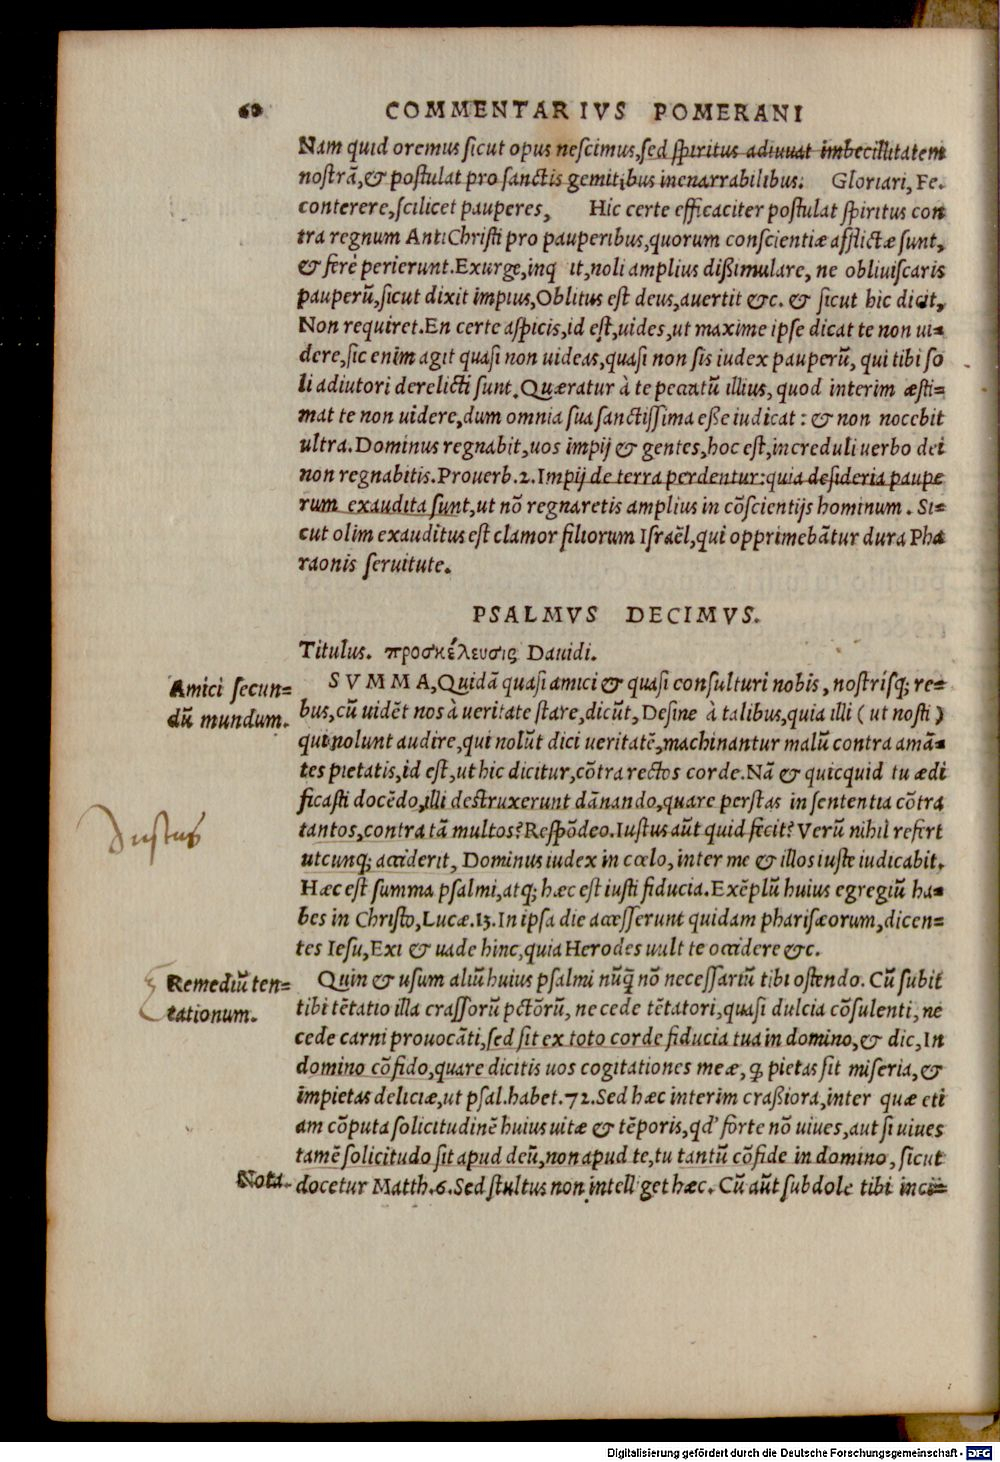 60 COMMENTARIVS POMERANI
Nam quid oremus sicut opus nescimus, sed spiritus adiuuat imbecillitatem
nostrã, & postulat pro sanctis gemitibus inenarrabilibus. Gloriari, Fe.
conterere, scilicet pauperes, Hic certe efficaciter postulat spiritus con
tra regnum AntiChristi pro pauperibus, quorum conscientiæ afflictæ sunt,
& ferè perierunt. Exurge, inq it, noli amplius dißimulare, ne obliuiscaris
pauperũ, sicut dixit impius, Oblitus est deus, auertit &c. & sicut hic dicit,
Non requiret. En certe aspicis, id est, uides, ut maxime ipse dicat te non ui=
dere, sic enim agit quasi non uideas, quasi non sis iudex pauperũ, qui tibi so
li adiutori derelicti sunt. Quæratur à te peccatũ illius, quod interim æsti=
mat te non uidere, dum omnia sua sanctissima eße iudicat: & non nocebit
ultra. Dominus regnabit, uos impij & gentes, hoc est, increduli uerbo dei
non regnabitis. Prouerb. 2. Impij de terra perdentur: quia desideria paupe
rum exaudita sunt, ut nõ regnaretis amplius in cõscientijs hominum. Si=
cut olim exauditus est clamor filiorum Israẽl, qui opprimebãtur dura Pha
raonis seruitute.
PSALMVS DECIMVS.
Titulus. προσκέλευσις Dauidi.
Amici secun=
dũ mundum.
SVMMA, Quidã quasi amici & quasi consulturi nobis, nostrisq; re=
bus, cũ uidẽt nos à ueritate stare, dicũt, Desine à talibus, quia illi (ut nosti)
qui nolunt audire, qui nolũt dici ueritatẽ, machinantur malũ contra amã=
tes pietatis, id est, ut hic dicitur, cõtra rectos corde. Nã & quicquid tu ædi
ficasti docẽdo, illi destruxerunt dãnando, quare perstas in sententia cõtra
Iustus
tantos, contra tã multos? Respõdeo. Iustus aũt quid fecit? Verũ nihil refert
utcunq; acciderit, Dominus iudex in cœlo, inter me & illos iuste iudicabit.
Hæc est summa psalmi, atq; hæc est iusti fiducia. Exẽplũ huius egregiũ ha=
bes in Christo, Lucæ. 13. In ipsa die accesserunt quidam pharisæorum, dicen=
tes Iesu, Exi & uade hinc, quia Herodes uult te occidere &c.
Remediũ ten=
tationum.
Quin & usum aliũ huius psalmi nũq̃ nõ necessariũ tibi ostendo. Cũ subit
tibi tẽtatio illa crassorũ pctõrũ, ne cede tẽtatori, quasi dulcia cõsulenti, ne
cede carni prouocãti, sed sit ex toto corde fiducia tua in domino, & dic, In
domino cõfido, quare dicitis uos cogitationes meæ, q̃ pietas sit miseria, &
impietas deliciæ, ut psal. habet. 72. Sed hæc interim craßiora, inter quæ eti
am cõputa solicitudinẽ huius uitæ & tẽporis, qd' forte nõ uiues, aut si uiues
tamẽ solicitudo sit apud deũ, non apud te, tu tantũ cõfide in domino, sicut
Nota.
docetur Matth. 6. Sed stultus non intell get hæc. Cũ aũt subdole tibi inci=
Digitalisierung gefördert durch die Deutsche Forschungsgemeinschaft - DFG